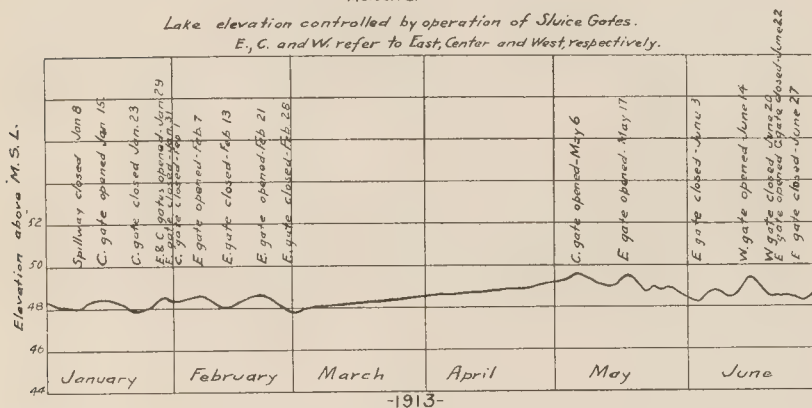 Lake elevation controlled by operation of Sluice Gates.
E., C. and W. refer to East, Center and West, respectively.
Elevation above M.S.L.
52
50
48
46
44
Spillway closed Jan 8
C. gate opened Jan 15
C. gate closed Jan. 23
E & C gates opened-Jan. 29
E gate closed-Jan. 31
C. gate closed-Feb 1
E gate opened-Feb. 7
E. gate closed-Feb 13
E. gate opened-Feb 21
E. gate closed-Feb. 28
C. gate opened-May 6
E gate opened-May 17
E gate closed-June 3
W. gate opened June 14
W gate closed June 20
E gate opened C gate closed-June 22
E gate closed-June 27
January
February
March
April
May
June
-1913-